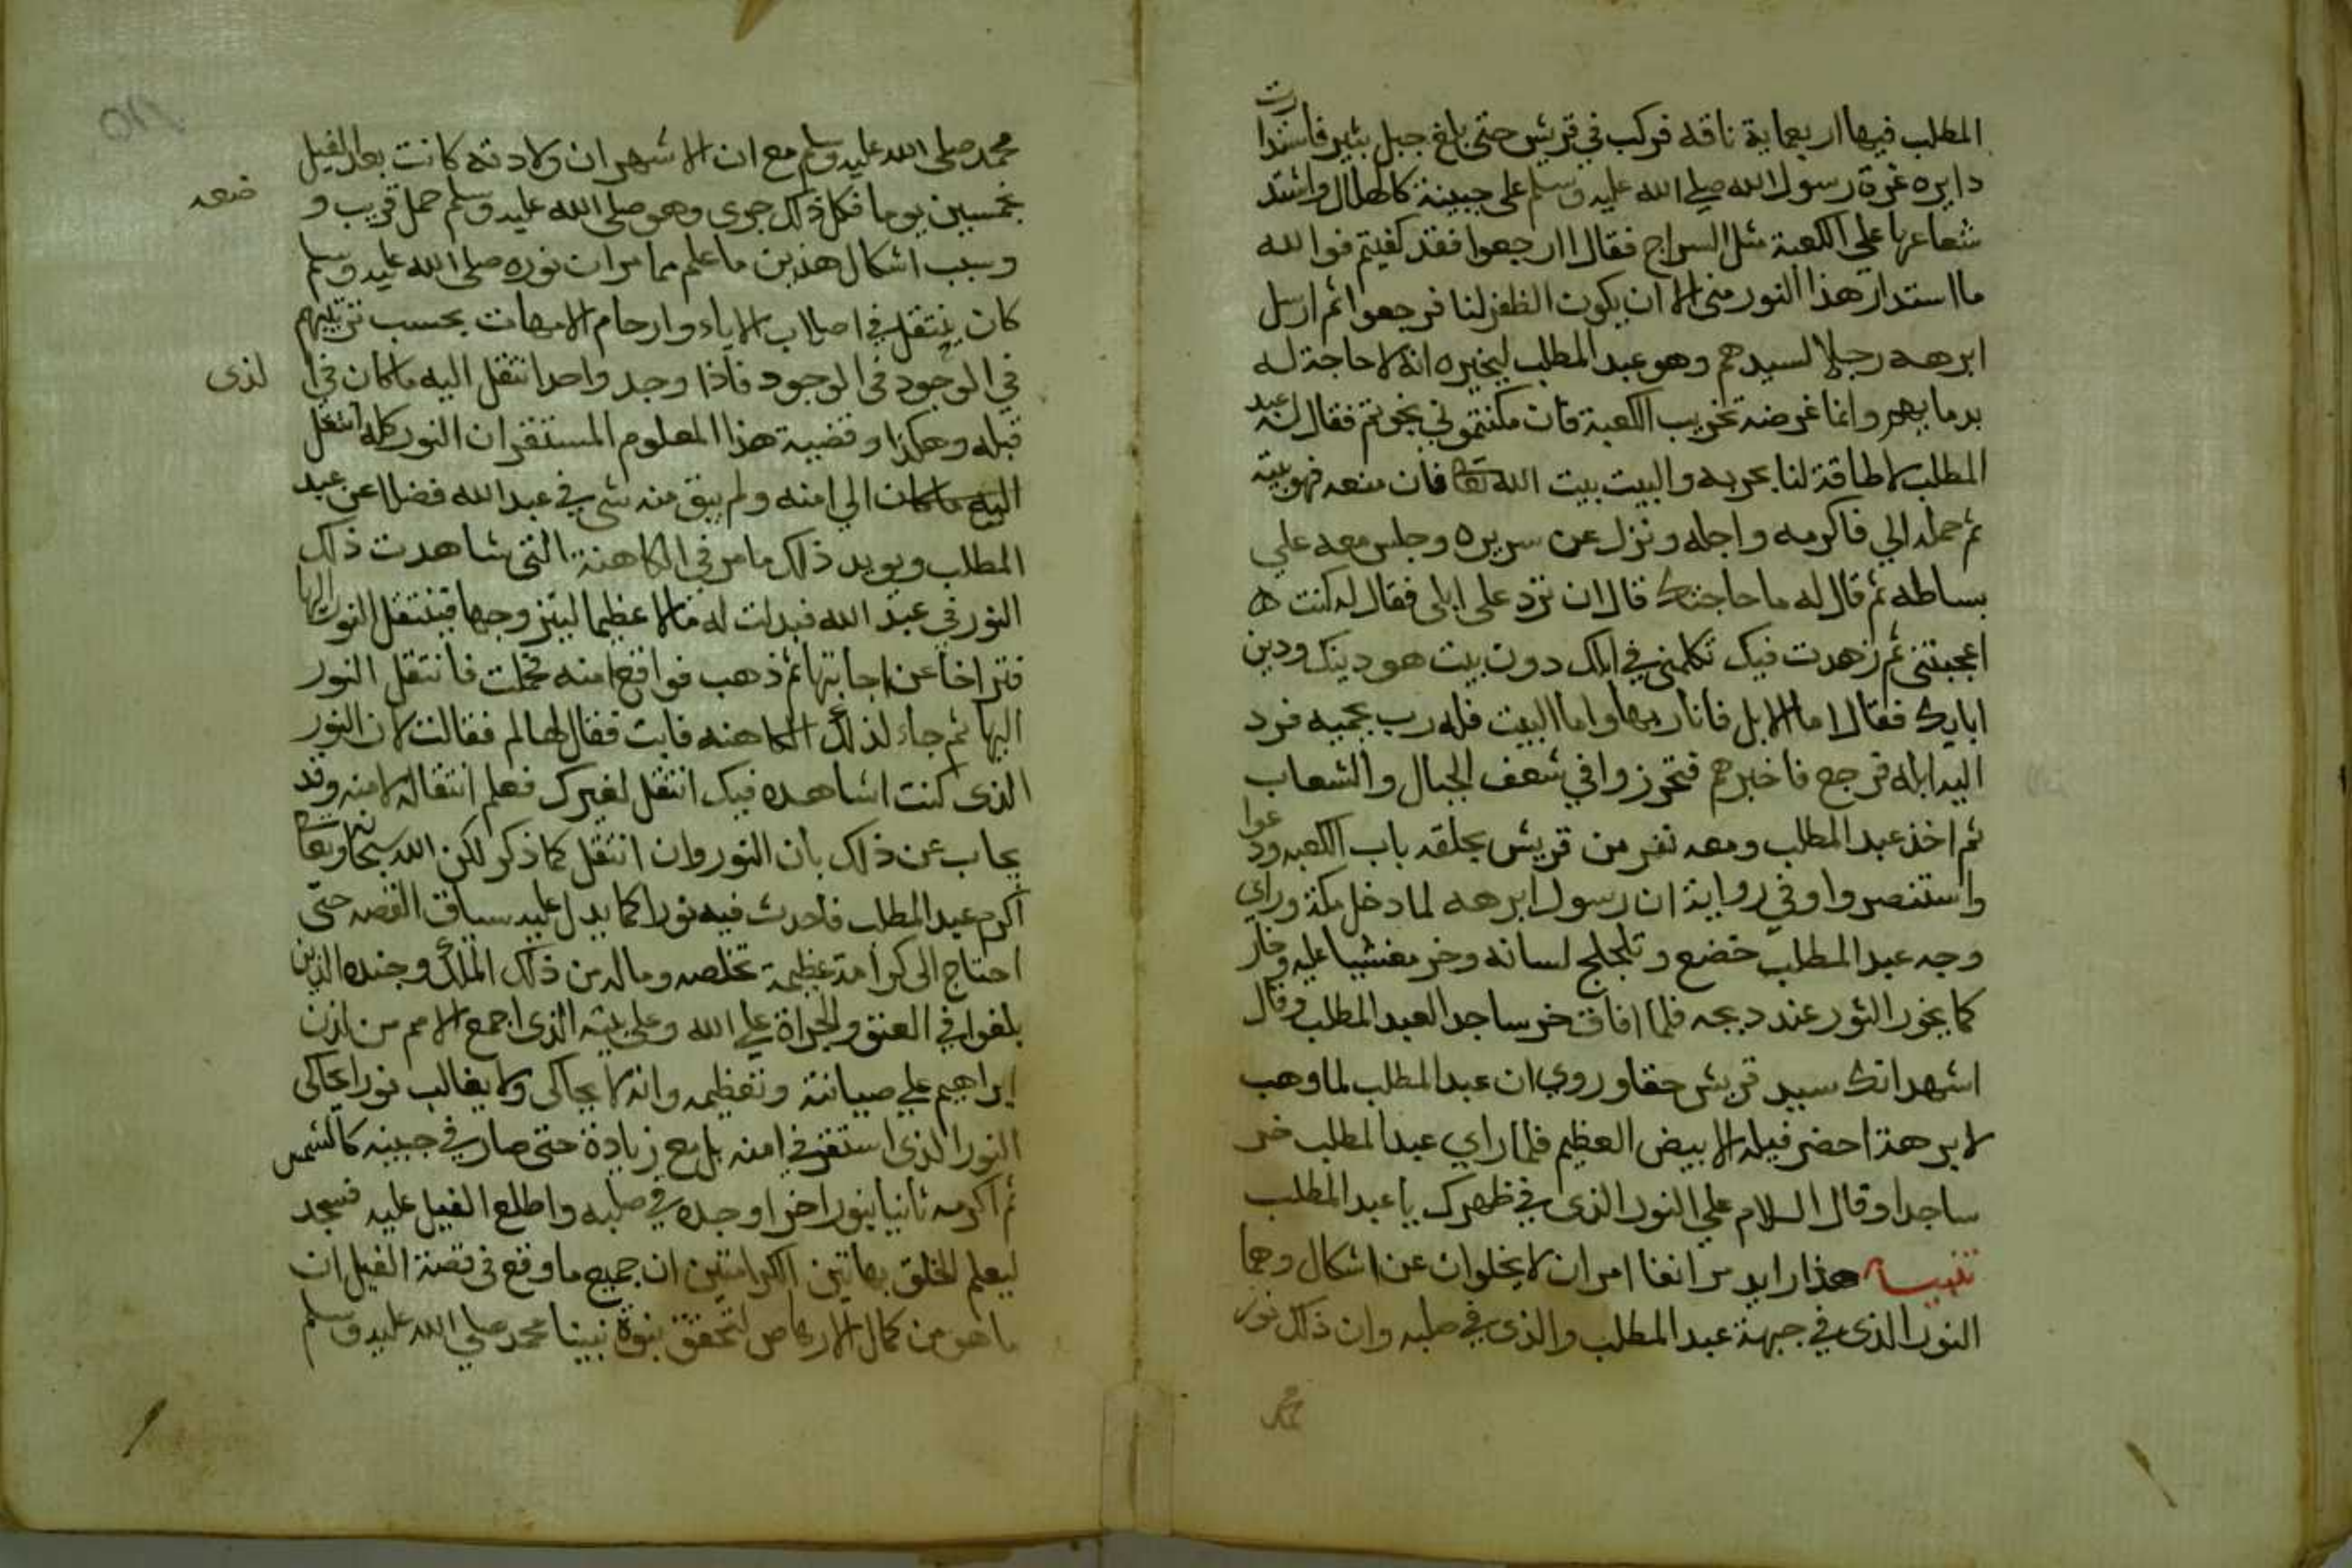 المطلب فيها اربعماية ناقه فركب في قريش حتى بلغ جبل بثير فاستدارت
دايره غرة رسول الله صلي الله عليه وسلم علي جبينة كالهلال واشتد
شعاعها علي الكعبة مثل السراج فقال ارجعوا فقد كفيتم فوالله
ما استدار هذا النور مني الا ان يكون الظفر لنا فرجعوا ثم ارسل
ابرهه رجلا لسيدهم وهو عبد المطلب ليخبره انه لا حاجة له
بدمايهم وانما غرضه تخريب الكعبة فان مكنتموني نجوتم فقال له عبد
المطلب لا طاقة لنا بحربه والبيت بيت الله تعا فان منعه فهو بيته
ثم حمله الي فاكرمه واجله ونزل عن سريره وجلس معه علي
بساطه ثم قال له ما حاجتك قال ان ترد علي ابلي فقال له كنت
اعجبتني ثم زهدت فيك تكلمني في ابلك دون بيت هو دينك ودين
ابايك فقال اما الابل فانا ربها واما البيت فله رب يحميه فرد
اليه ابله فرجع فاخبرهم فتحرزوا في شعف الجبال والشعاب
ثم اخذ عبد المطلب ومعه نفر من قريش بحلقه باب الكعبه ودعوا
واستنصروا وفي رواية ان رسول ابرهه لما دخل مكة وراي
وجه عبد المطلب خضع وتلجلج لسانه وخر مغشيا عليه وخار
كما يخور الثور عند ديحه فلما افاق خر ساجدا لعبد المطلب وقال
اشهد انك سيد قريش حقا وروي ان عبد المطلب لما وهب
لابرهة احضر فيله الابيض العظيم فلما راي عبد المطلب خر
ساجدا وقال السلام علي النور الذي في ظهرك يا عبد المطلب
تنبيه هذا زايد مر انفا امران لا يخلوان عن اشكال وهما
النور الذي في جبهة عبد المطلب والذي في صلبه وان ذلك نور
محمد
محمد صلى الله عليه وسلم مع ان الاشهر ان ولادته كانت بعد الفيل
بخمسين يوما فكل ذلك جري وهو صلى الله عليه وسلم حمل قريب و ضعه
وسبب اشكال هذين ما علم مما مر ان نوره صلى الله عليه وسلم
كان ينتقل في اصلاب الاباء وارحام الامهات بحسب ترتيبهم
في الوجود في الوجود فاذا وجد واحد انتقل اليه ما كان في ا لذي
قبله وهكذا وقضية هذا المعلوم المستقر ان النور كله انتقل
اليه ما كان الي امنه ولم يبق منه شي في عبد الله فضلا عن عبد
المطلب ويويد ذلك ما مر في الكاهنة التي شاهدت ذلك
النور في عبد الله فبدلت له مالا عظيما ليتزوجها فينتقل النور اليها
فتراخا عن اجابتها ثم ذهب فواقع امنه فحملت فانتقل النور
اليها ثم جاء لذلك الكاهنه فابت فقال لها لم فقالت لان النور
الذي كنت اشاهده فيك انتقل لغيرك فعلم انتقاله لامنه وقد
يجاب عن ذلك بان النور وان انتقل كما ذكر لكن الله سبحانه وتعا
اكرم عبد المطلب فاحدث فيه نورا كما يدل عليه سياق القصه حتى
احتاج الى كرامة عظيمة تخلصه وماله من ذلك الملك وجنده الذين
بلغوا في العتو والجراة علي الله وعلي بيته الذي اجمع الامم من لدن
ابراهيم علي صيانته وتعظيمه وانه لا يحاكي ولا يغالب نورا يحاكي
النور الذي استقر في امنه بل مع زيادة حتى صار في جبينه كالشمس
ثم اكرمه ثانيا بنور اخر اوجده في صلبه واطلع الفيل عليه فسجد
ليعلم الخلق بهاتين الكرامتين ان جميع ما وقع في قصة الفيل ان
ما هو من كمال الارهاص لتحقق نبوة نبينا محمد صلي الله عليه وسلم